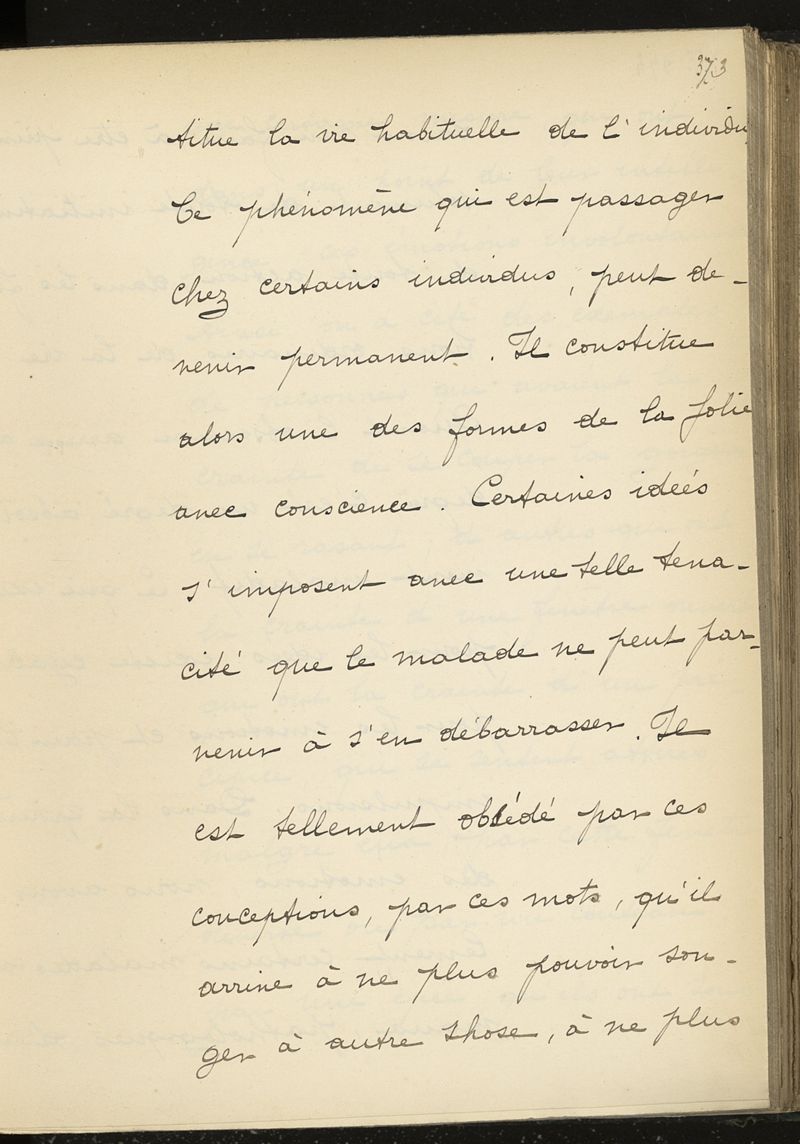 373
titue la vie habituelle de l'individu
Ce phénomène qui est passager
chez certains individus, peut de-
venir permanent. Il constitue
alors une des formes de la folie
avec conscience. Certaines idées
s'imposent avec une telle téna-
cité que le malade ne peut par-
venir à s'en débarrasser. Il
est tellement obsédé par ces
conceptions, par ces mots, qu'il
arrive à ne plus pouvoir son-
ger à autre chose, à ne plus